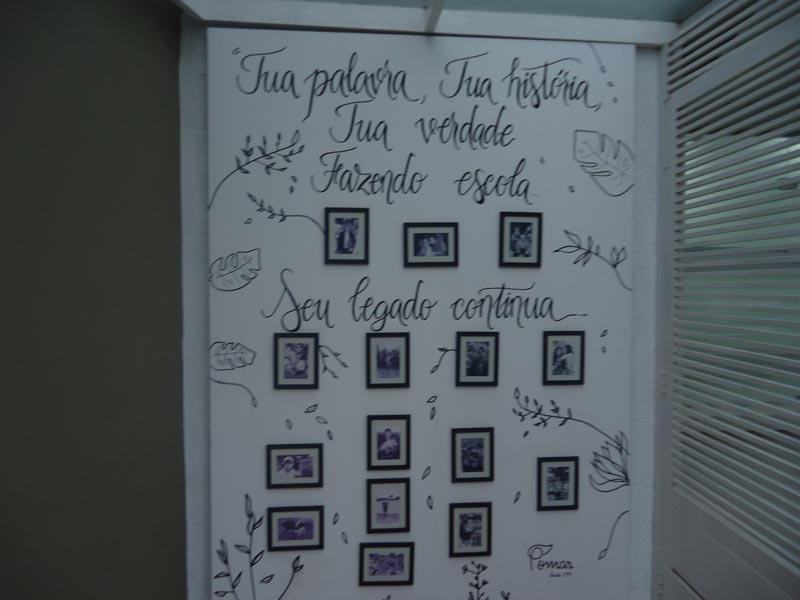 "Tua palavra, Tua história,
Tua verdade
Fazendo escola"
Seu legado continua...
Pomar